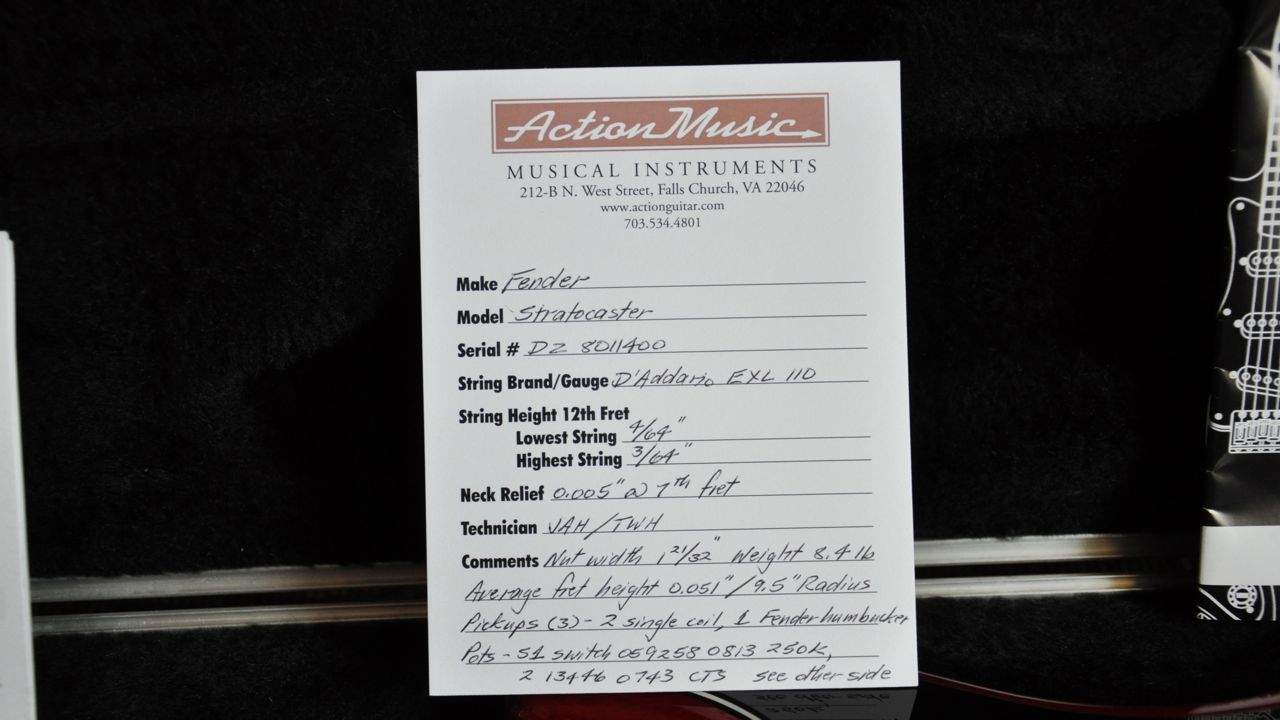 Action Music
MUSICAL INSTRUMENTS
212-B N. West Street, Falls Church, VA 22046
www.actionguitar.com
703.534.4801
Make Fender
Model Stratocaster
Serial # DZ 8011400
String Brand/Gauge D'Addario EXL 110
String Height 12th Fret
Lowest String 4/64"
Highest String 3/64"
Neck Relief 0.005" @ 7th fret
Technician JAH/TWH
Comments Nut width 1 21/32" Weight 8.4 lb
Average fret height 0.051" / 9.5" Radius
Pickups (3) - 2 single coil, 1 Fender humbucker
Pots - S1 switch 059258 0813 250K,
2 13446 0743 CTS see other side